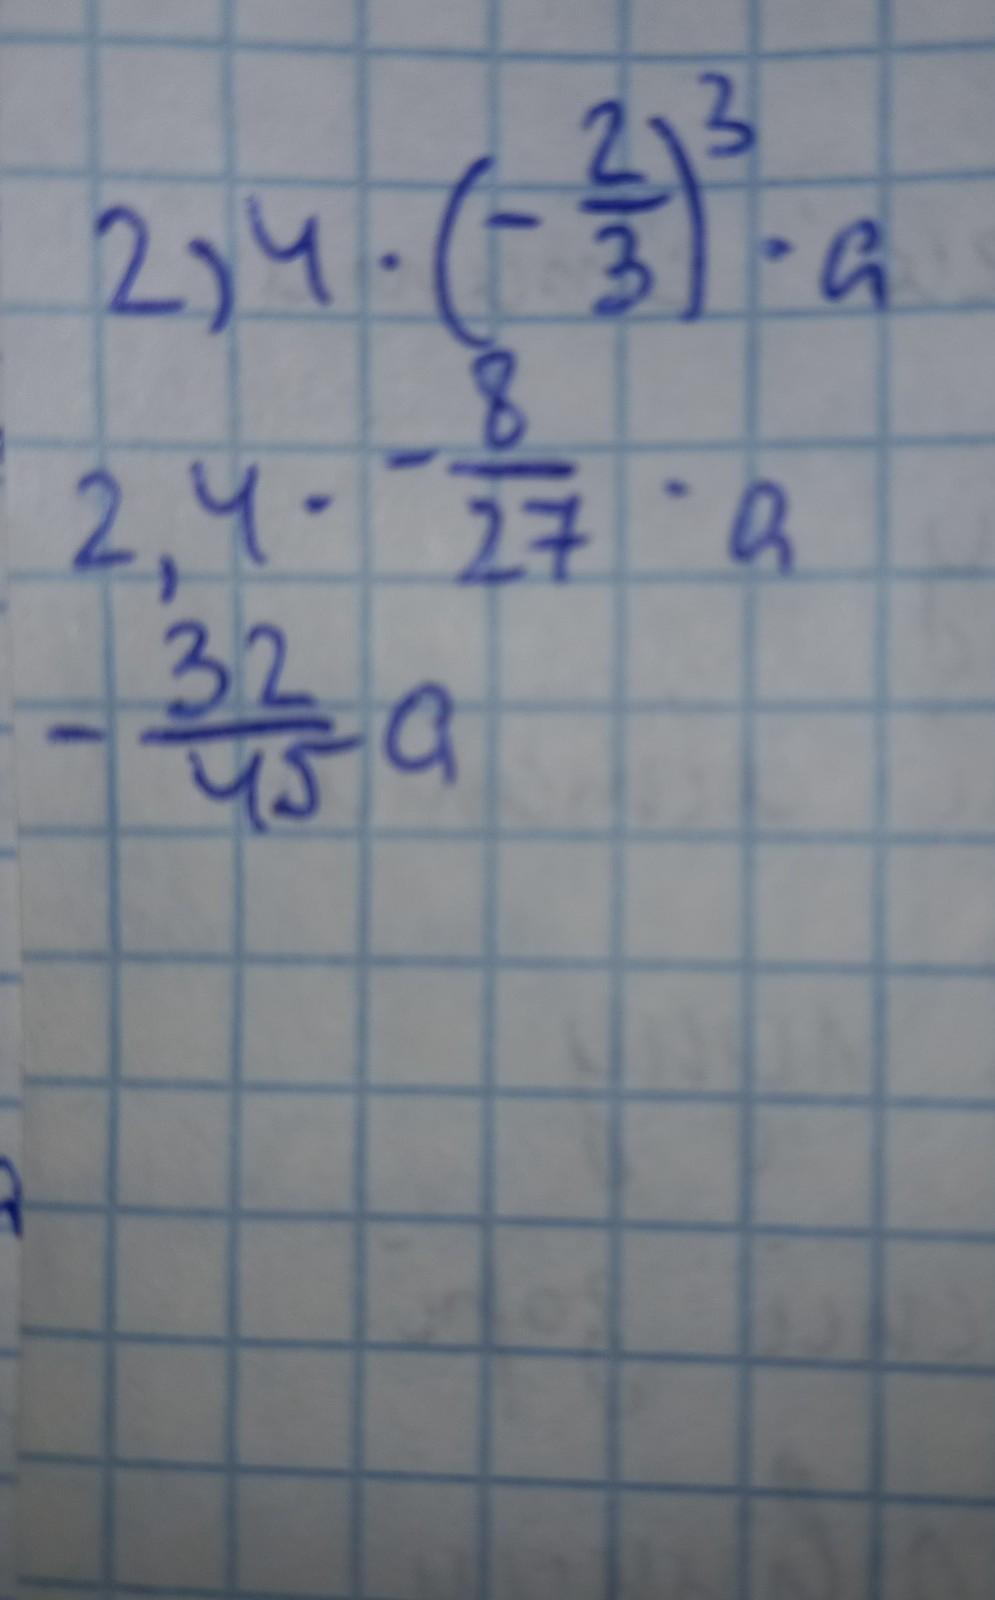 2,4 · (- 2/3)³ · a
2,4 · - 8/27 · a
- 32/45 a